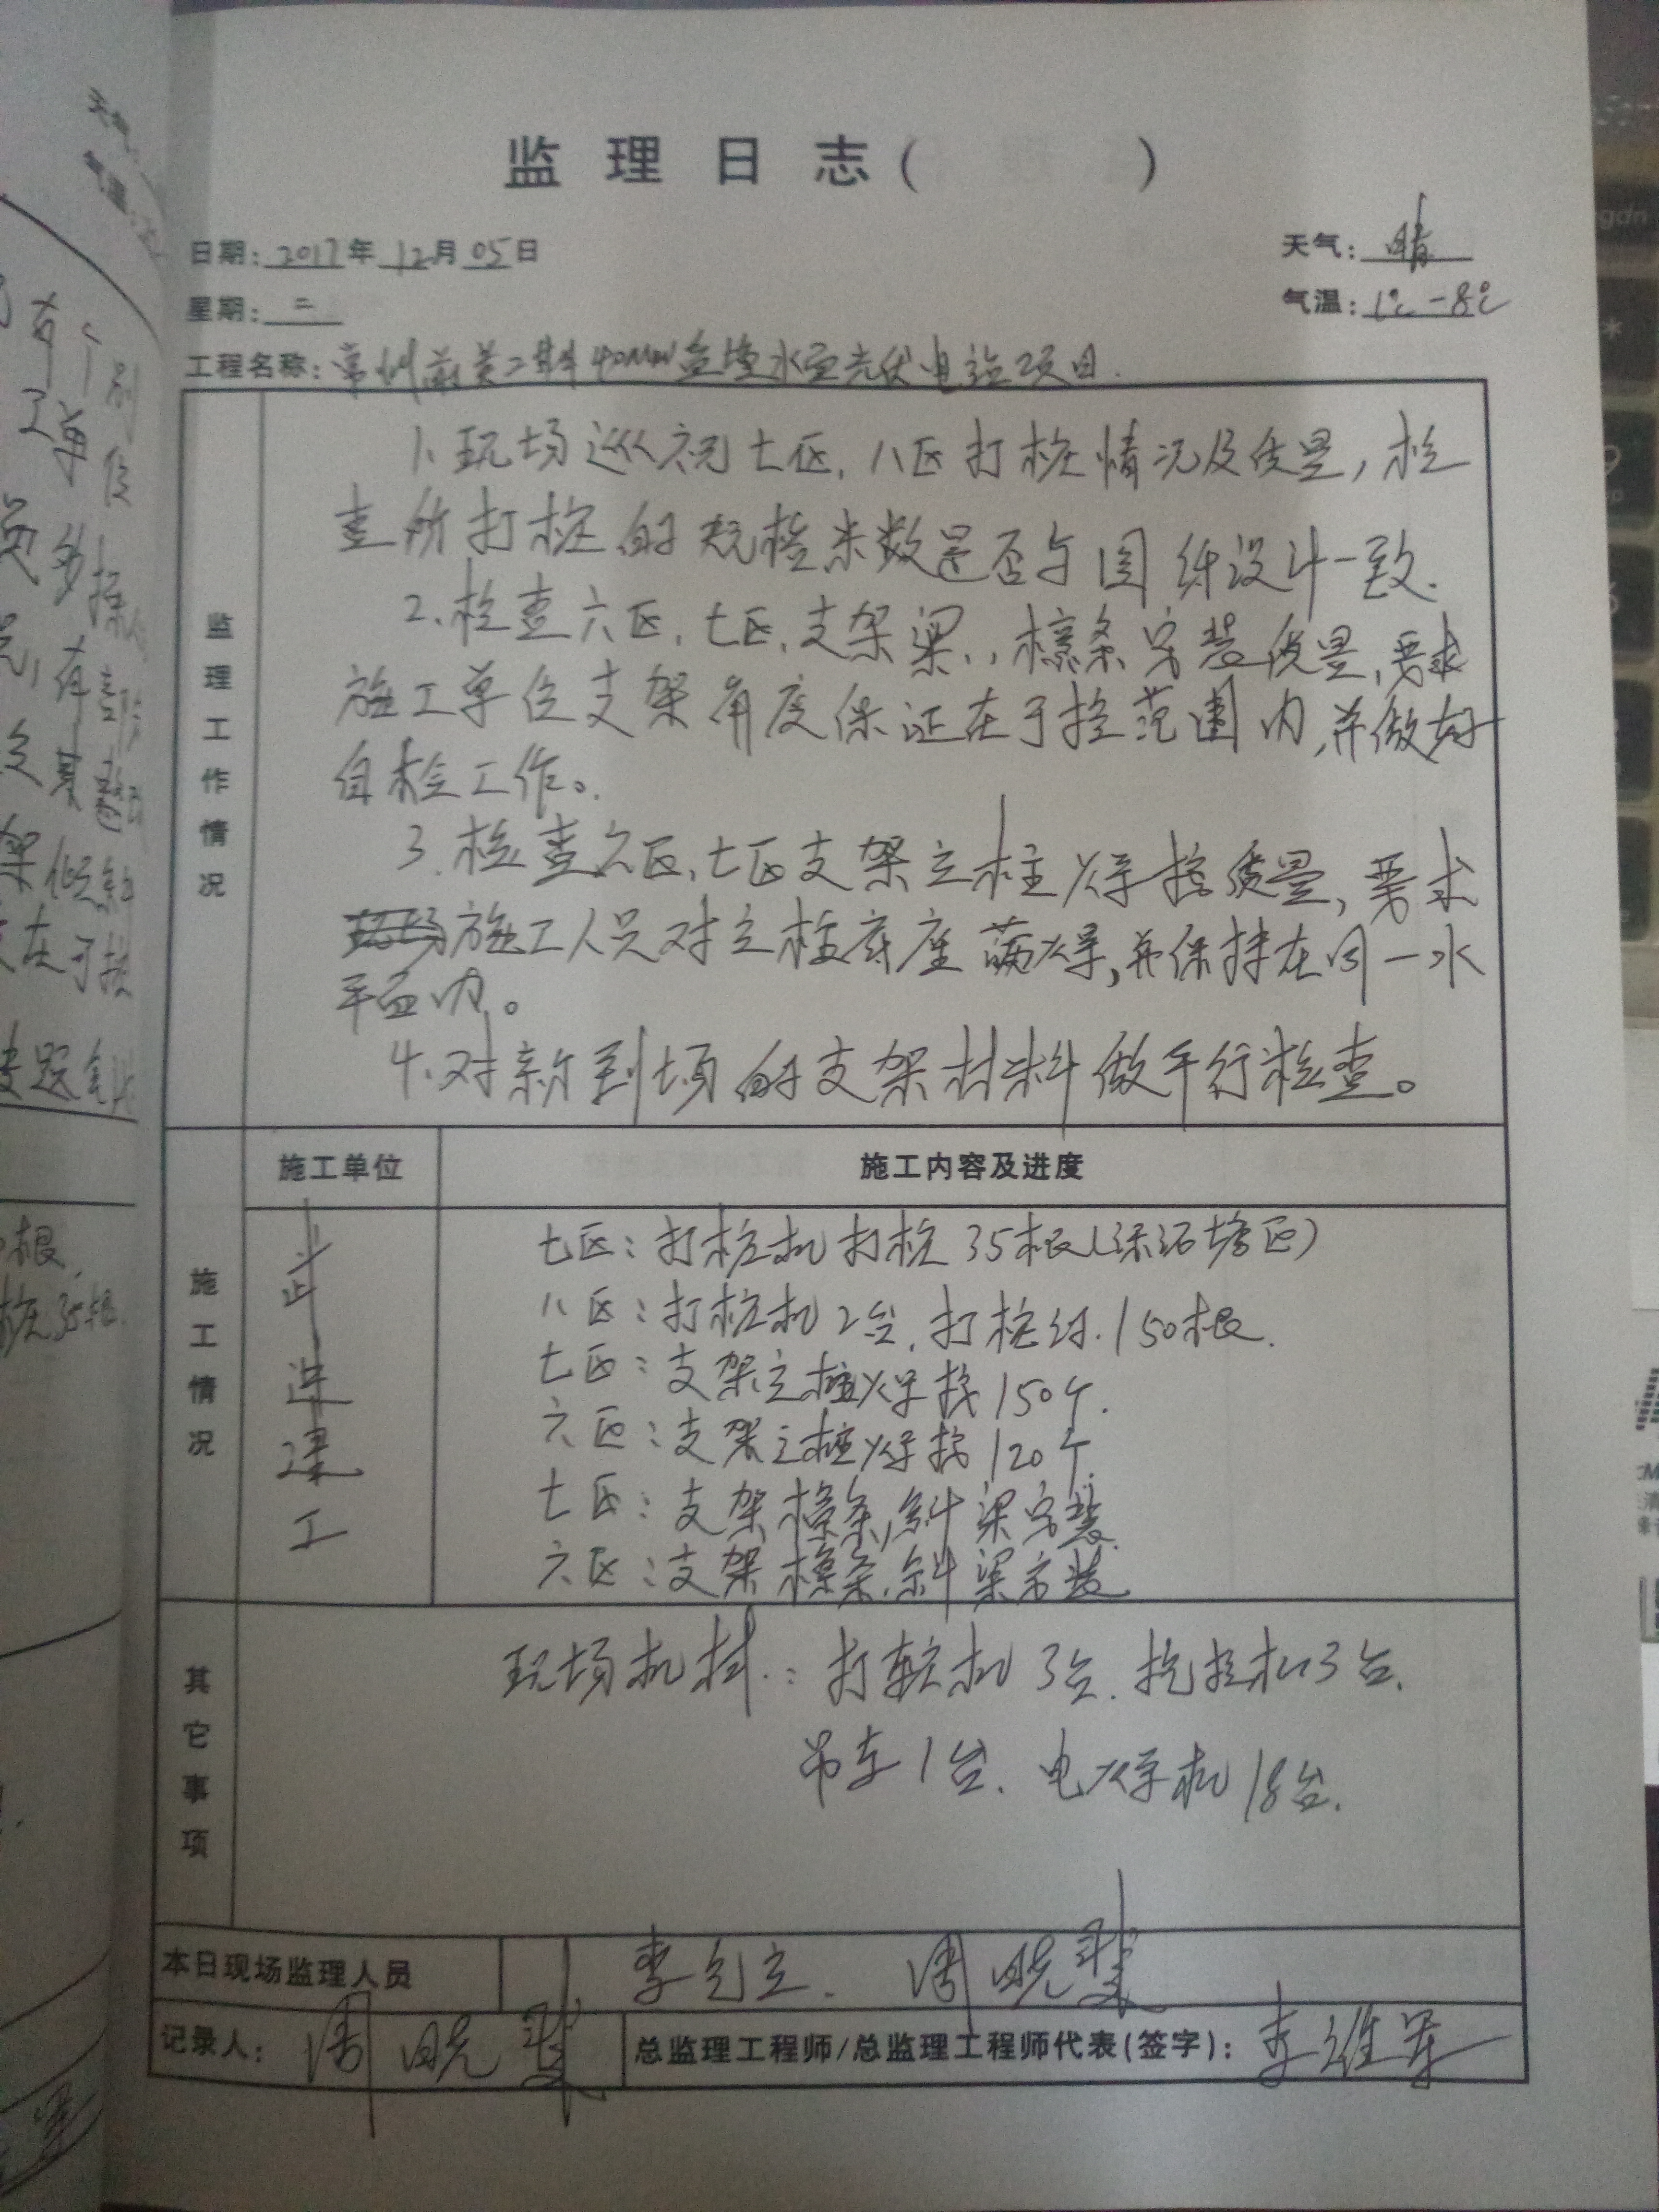 监理日志( )
日期: 2017年12月05日
天气: 晴
星期: 二
气温: 1℃-8℃
工程名称: 常州前黄二期40MW鱼塘水面光伏电站项目.
监理工作情况
1、现场巡视七区、八区打桩情况及质量,检
查所打桩的规格米数是否与图纸设计一致.
2、检查六区、七区、支架梁、檩条安装质量,要求
施工单位支架角度保证在可控范围内,并做好
自检工作。
3、检查六区、七区支架立柱焊接质量,要求
施工人员对立柱底座满焊,并保持在同一水
平面内。
4、对新到场的支架材料做平行检查。
施工单位
施工内容及进度
施工情况
七区:打桩机打桩35根(深沼塘区)
八区:打桩机2台,打桩约150根.
七区:支架立柱焊接150个.
六区:支架立柱焊接120个.
七区:支架檩条,斜梁安装.
六区:支架檩条,斜梁安装
其它事项
现场机械:打桩机3台.挖掘机3台.
吊车1台.电焊机18台.
本日现场监理人员
记录人:
总监理工程师/总监理工程师代表(签字):